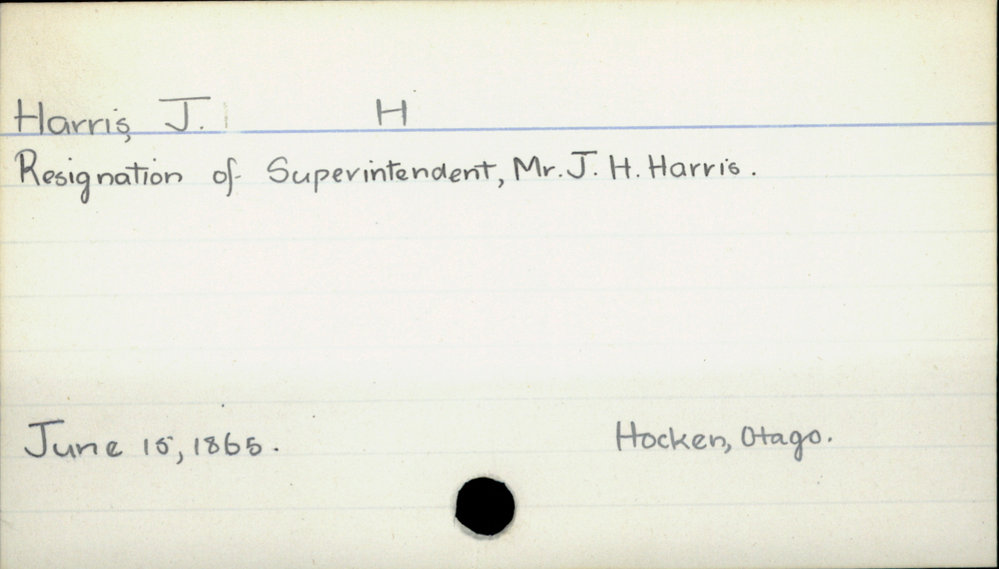 Harris, J. H
Resignation of Superintendent, Mr. J. H. Harris.
June 15, 1865.
Hocken, Otago.